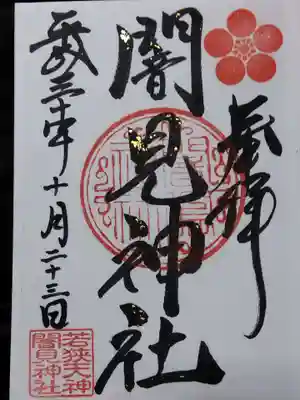 奉拝
闇見神社
平成三十年十月二十三日
若狭大神
闇見神社